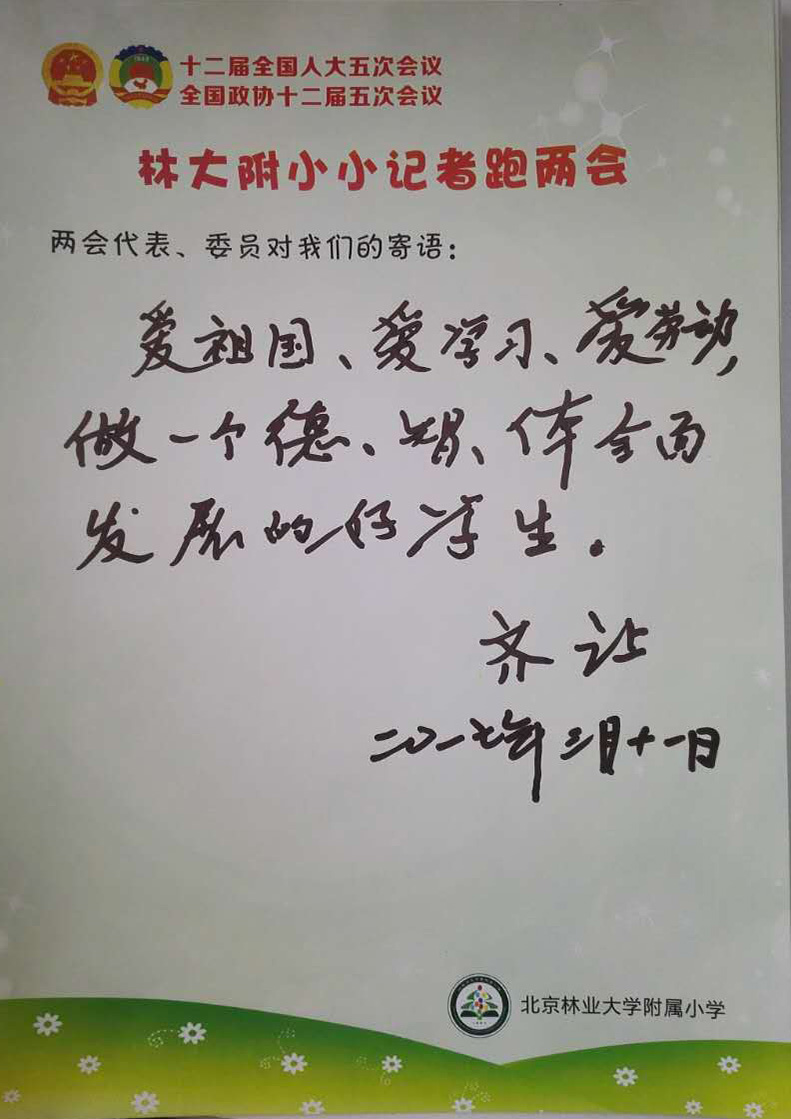 十二届全国人大五次会议
全国政协十二届五次会议
林大附小小记者跑两会
两会代表、委员对我们的寄语：
爱祖国、爱学习、爱劳动，
做一个德、智、体全面
发展的好学生。
齐让
二〇一七年三月十一日
北京林业大学附属小学